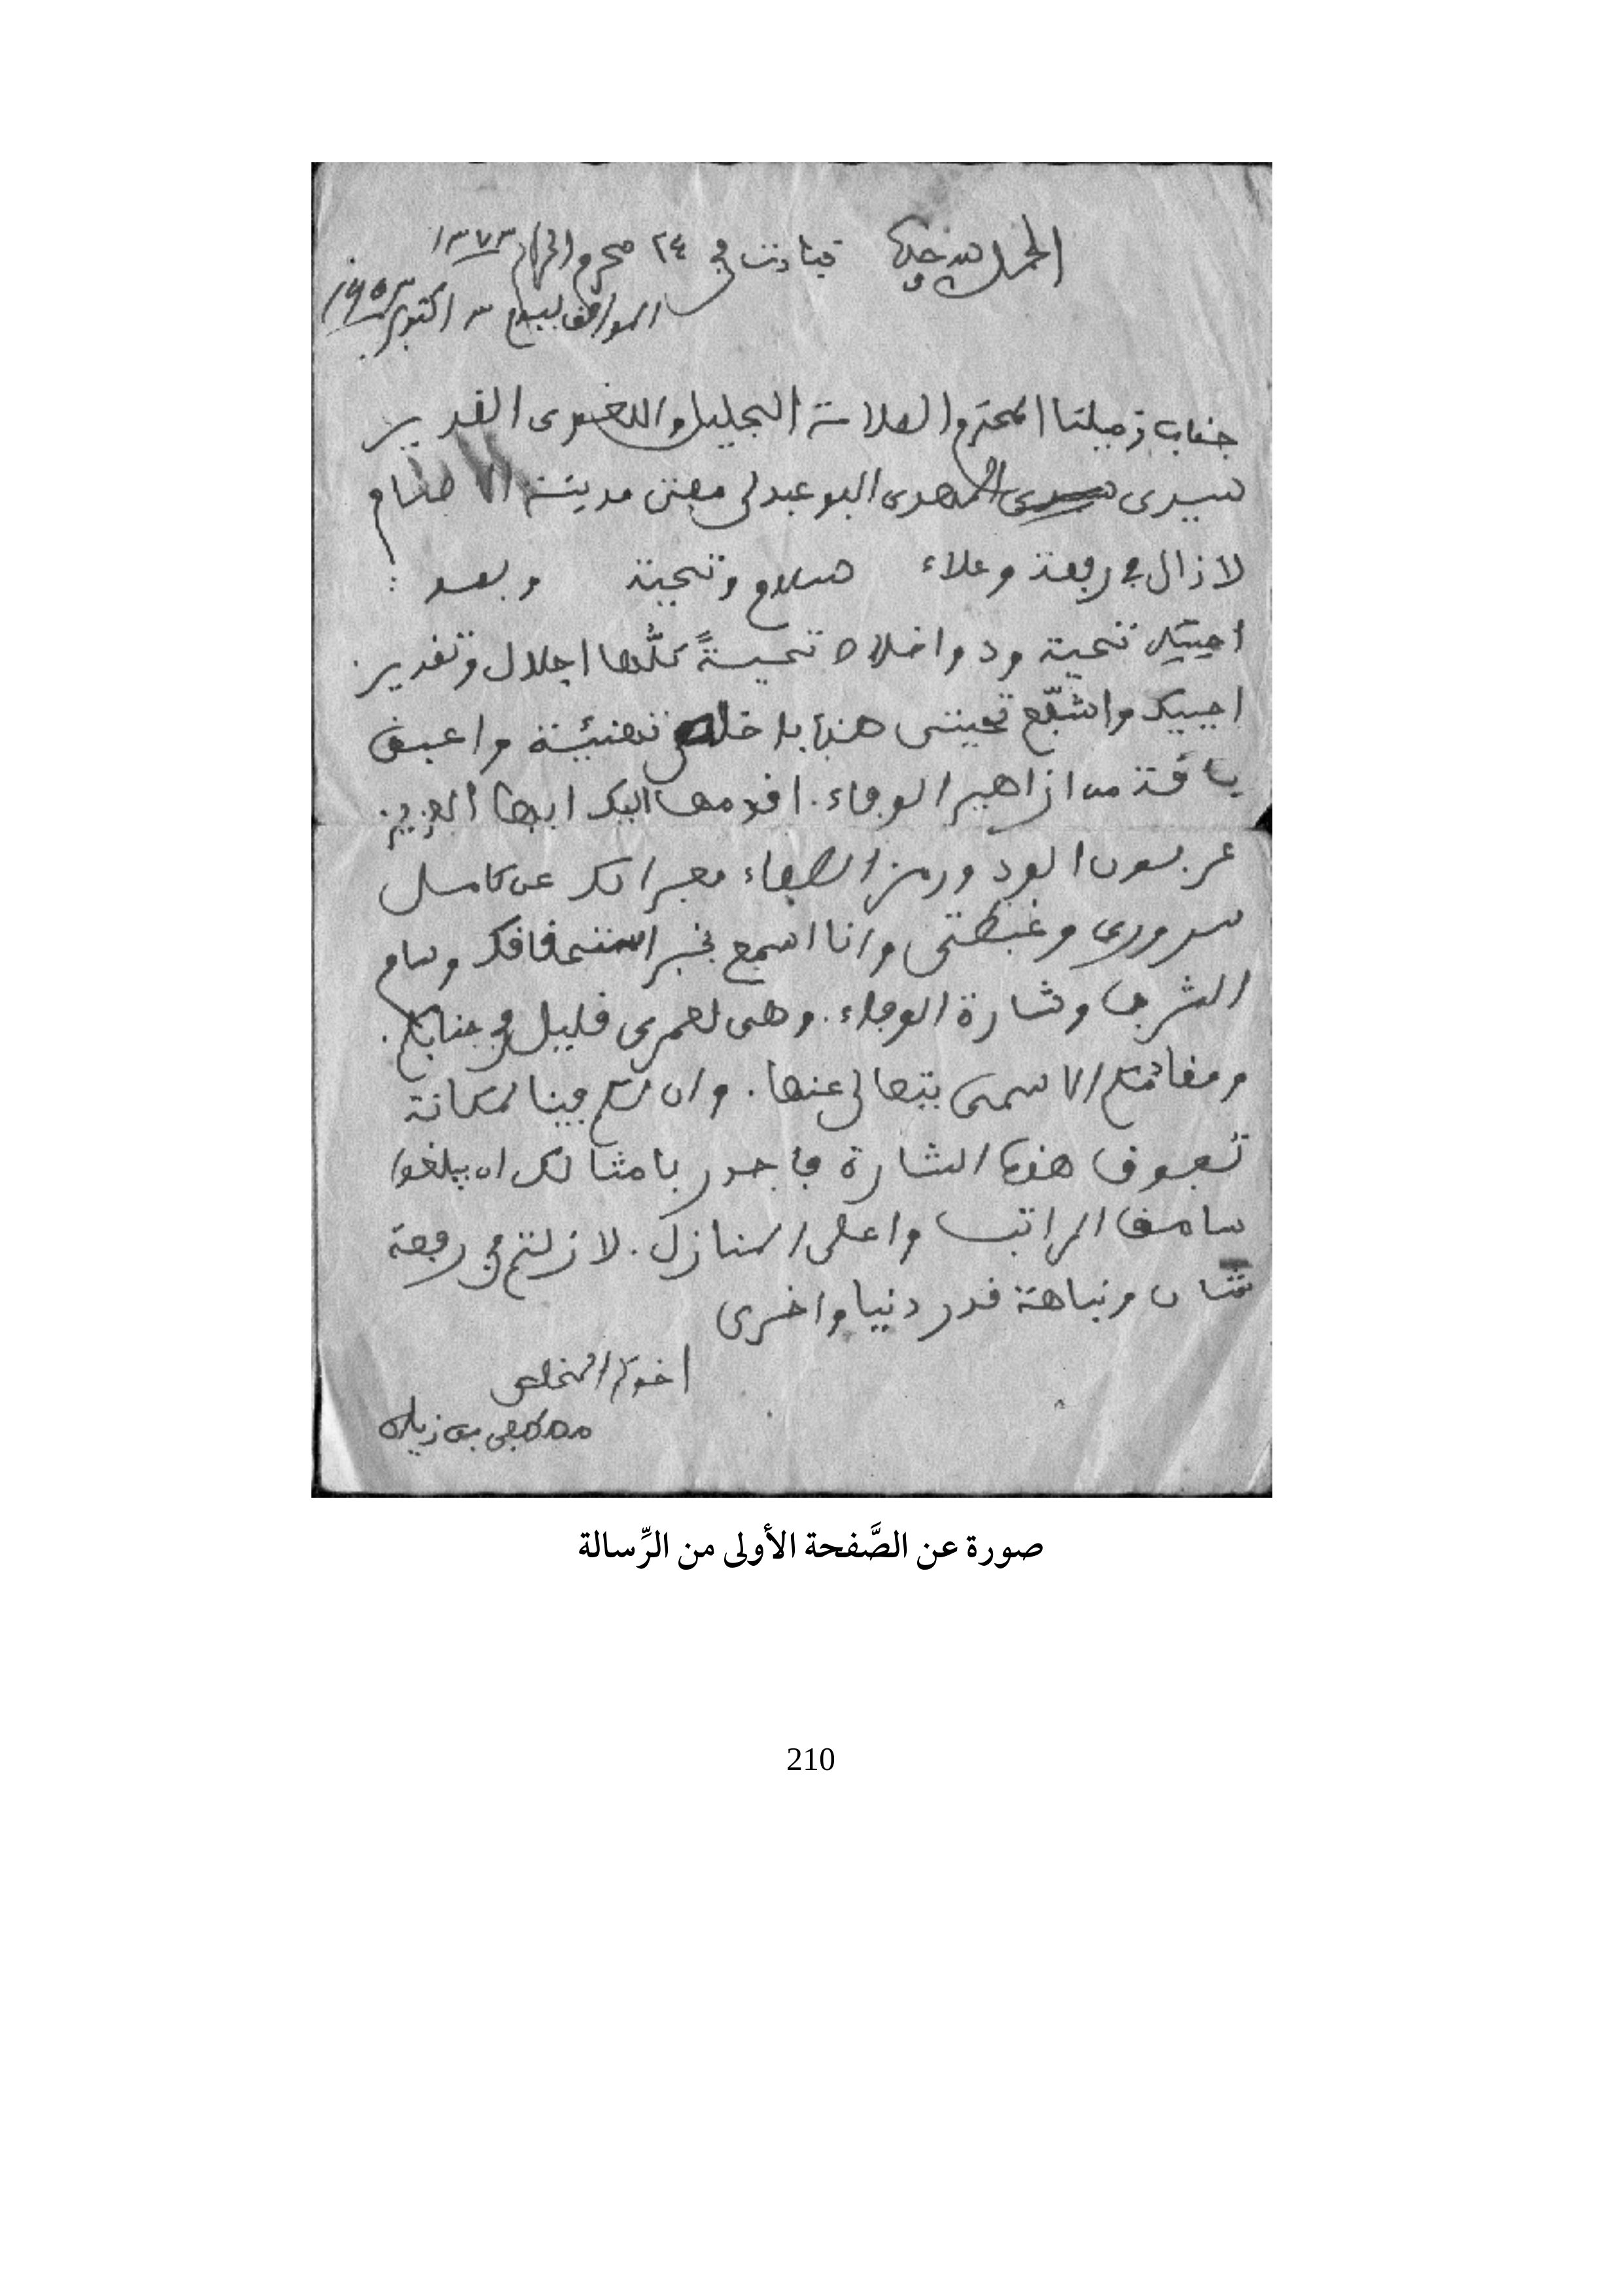 الحمد لله وحده تيارت في ٢٤ محرم الحرام ١٣٧٣
الموافق ليوم ٣ اكتوبر ١٩٥٣
جناب زميلنا المحترم العلامة الجليل واللغوى القدير
سيدى المهدى البوعبدلى مفتى مدينة الاصنام
لا زال في رفعة وعلاء سلام وتحية وبعد :
احييك تحية ود واخلاص تحيةً كلُّها اجلال وتقدير
احييك واشفّع تحيتى هذه باخلص تهنيئة واعبق
باقة من ازاهير الوفاء. اقدمها اليك ايها العزيز
عربون الود ورمز الصفاء معبرا لك عن كامل
سرورى وغبطتى وانا اسمع بخبر استحقاقك وسام
الشرف وشارة الوفاء. وهى لعمرى قليل في جنابكم.
ومقامكم الاسمى يتعالى عنها. وان لكم فينا لمكانة
تفوق هذه الشارة فاجدر بامثالك ان يبلغوا
سامق المراتب واعلى المنازل. لا زلتم في رفعة
شان ونباهة قدر دنيا واخرى
اخوكم المخلص
مصطفى بن زيان
صورة عن الصَّفحة الأولى من الرِّسالة
210